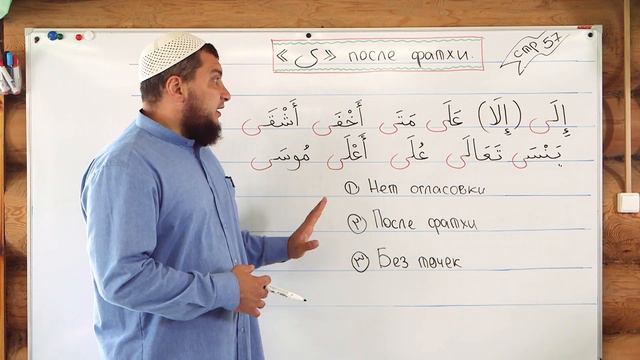 «ى» после фатхи.
стр 57
إِلَى (إِلَا) عَلَى مَتَى أَخْفَى أَشْقَى
يَنْسَى تَعَالَى عُلَى أَعْلَى مُوسَى
① Нет огласовки
② После фатхи
③ Без точек